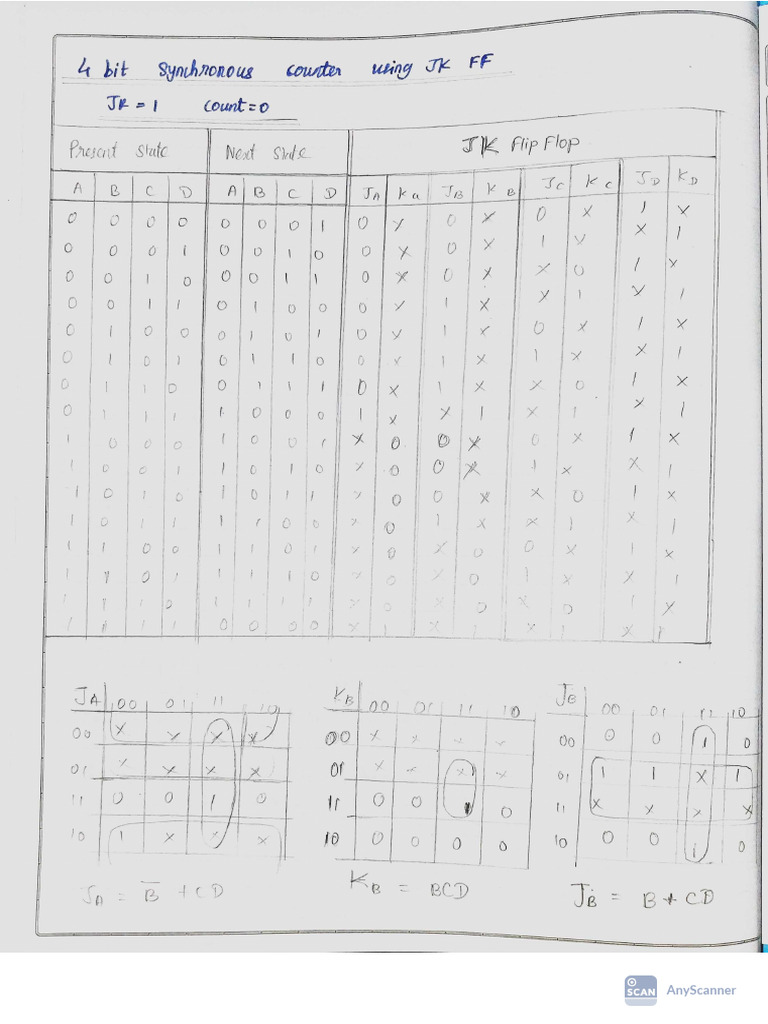 4 bit synchronous counter using JK FF
JK = 1 Count = 0
Present State Next State JK Flip Flop
A B C D A B C D JA Ka JB KB JC KC JD KD
0 0 0 0 0 0 0 1 0 X 0 X 0 X 1 X
0 0 0 1 0 0 1 0 0 X 0 X 1 X X 1
0 0 1 0 0 0 1 1 0 X 0 X X 0 1 X
0 0 1 1 0 1 0 0 0 X 1 X X 1 X 1
0 1 0 0 0 1 0 1 0 X 1 X 0 X 1 X
0 1 0 1 0 1 1 0 0 X 1 X 1 X X 1
0 1 1 0 0 1 1 1 0 X 1 X X 0 1 X
0 1 1 1 1 0 0 0 1 X X 1 X 1 X 1
1 0 0 0 1 0 0 1 X 0 0 X 0 X 1 X
1 0 0 1 1 0 1 0 X 0 0 X 1 X X 1
1 0 1 0 1 0 1 1 X 0 0 X X 0 1 X
1 0 1 1 1 1 0 0 X 0 1 X X 1 X 1
1 1 0 0 1 1 0 1 X 0 X 0 0 X 1 X
1 1 0 1 1 1 1 0 X 0 X 0 1 X X 1
1 1 1 0 1 1 1 1 X 0 X 0 X 0 1 X
1 1 1 1 0 0 0 0 X 1 X 1 X 1 X 1
JA 00 01 11 10
00 X X X X
01 X X X X
11 0 0 1 0
10 1 X X X
JA = B̅ + CD
KB 00 01 11 10
00 X X X X
01 X X X X
11 0 0 1 0
10 0 0 0 0
KB = BCD
JB 00 01 11 10
00 0 0 1 0
01 1 1 X 1
11 X X X X
10 0 0 1 0
JB = B + CD
SCAN AnyScanner